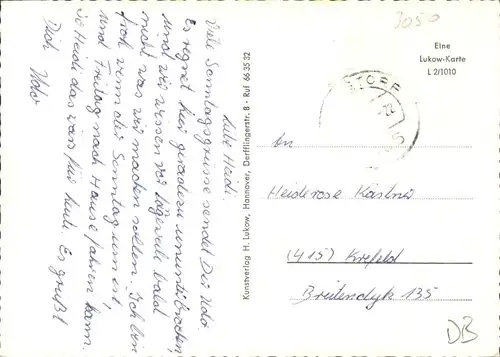 Liebe Heidi
Viele Sonntagsgrüsse sendet Dir Udo
Es regnet hier geradezu ununterbrochen
und wir wissen vor lauter bald
nicht was wir machen sollen. Ich bin
froh wenn der Sonntag um ist,
und Freitag nach Hause fahren kann.
So Heidi das wärs für heute. Es grüßt
Dich Udo
Kunstverlag H. Lukow, Hannover, Derfflingerstr. 8 · Ruf 66 35 32
3050
Eine
Lukow-Karte
L 2/1010
TORF
An
Heiderose Kästner
(415) Krefeld
Breitendyk 135
DB